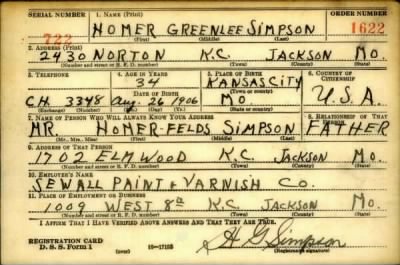 SERIAL NUMBER 1. NAME (Print) ORDER NUMBER
722 HOMER GREENLEE SIMPSON 1622
(First) (Middle) (Last)
2. ADDRESS (Print)
2430 NORTON K.C. JACKSON MO.
(Number and street or R. F. D. number) (Town) (County) (State)
3. TELEPHONE 4. AGE IN YEARS 5. PLACE OF BIRTH 6. COUNTRY OF CITIZENSHIP
34 KANSAS CITY
DATE OF BIRTH (Town or county)
CH. 3348 Aug. 26 1906 MO. U.S.A.
(Exchange) (Number) (Mo.) (Day) (Yr.) (State or country)
7. NAME OF PERSON WHO WILL ALWAYS KNOW YOUR ADDRESS 8. RELATIONSHIP OF THAT PERSON
MR. HOMER-FELDS SIMPSON FATHER
(Mr., Mrs., Miss) (First) (Middle) (Last)
9. ADDRESS OF THAT PERSON
1702 ELMWOOD K.C. JACKSON MO.
(Number and street or R. F. D. number) (Town) (County) (State)
10. EMPLOYER'S NAME
SEWALL PAINT & VARNISH CO.
11. PLACE OF EMPLOYMENT OR BUSINESS
1009 WEST 8th K.C. JACKSON MO.
(Number and street or R. F. D. number) (Town) (County) (State)
I AFFIRM THAT I HAVE VERIFIED ABOVE ANSWERS AND THAT THEY ARE TRUE.
REGISTRATION CARD
D. S. S. Form 1 (over) 16-17105 H G Simpson